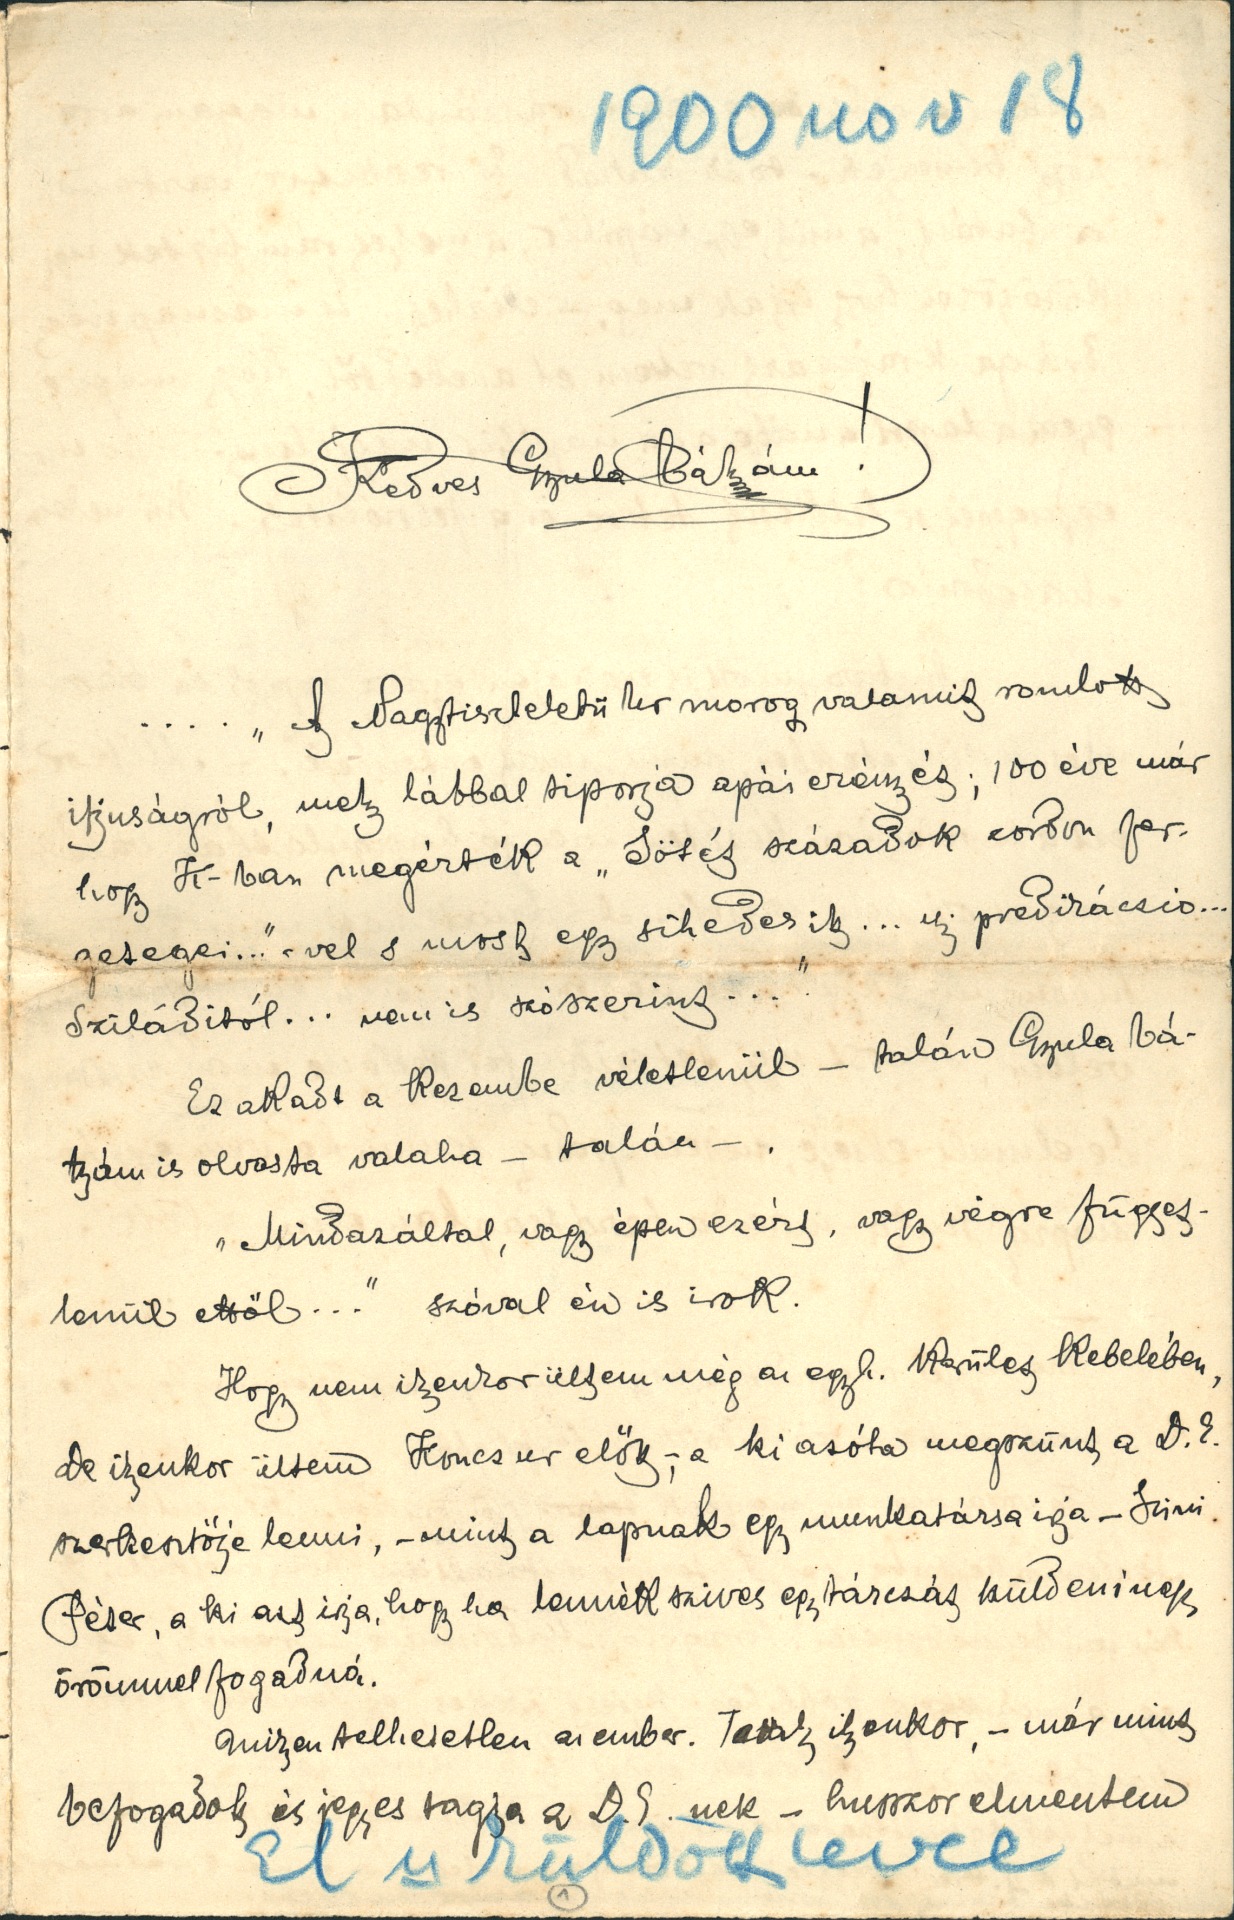 1900 nov 18
Kedves Gyula bátyám!
.... „A Nagytiszteletü Ur morog valamit romlott
ifjuságról, mely lábbal tiporja apái erényét; 100 éve már
hogy K-ban megérték a „Sötét századok cordon fer-
getegei..."-vel s most egy sihederik... uj predikáczio...
Sziláditól... nem is szószerint...."
Ez akadt a kezembe véletlenül – talán Gyula bá-
tyám is olvasta valaha – talán –.
„Mindazáltal, vagy épen ezért, vagy végre függet-
lenül ettől..." szóval én is irok.
Hogy nem ilyenkor ültem még az egyh. kerület kebelében,
de ilyenkor ültem Koncz ur előtt, – a ki azóta megszünt a D.E.
szerkesztője lenni, – mint a lapnak egy munkatársa irja – Szini
Péter, a ki azt irja, hogy ha lennék szives egy tárczát küldeni nagy
örömmel fogadná.
milyen telhetetlen az ember. Tavaly ilyenkor, – már mint
befogadott és jegyes tagja a D.E. nek – huszor elmentem
El y küldött levce
1